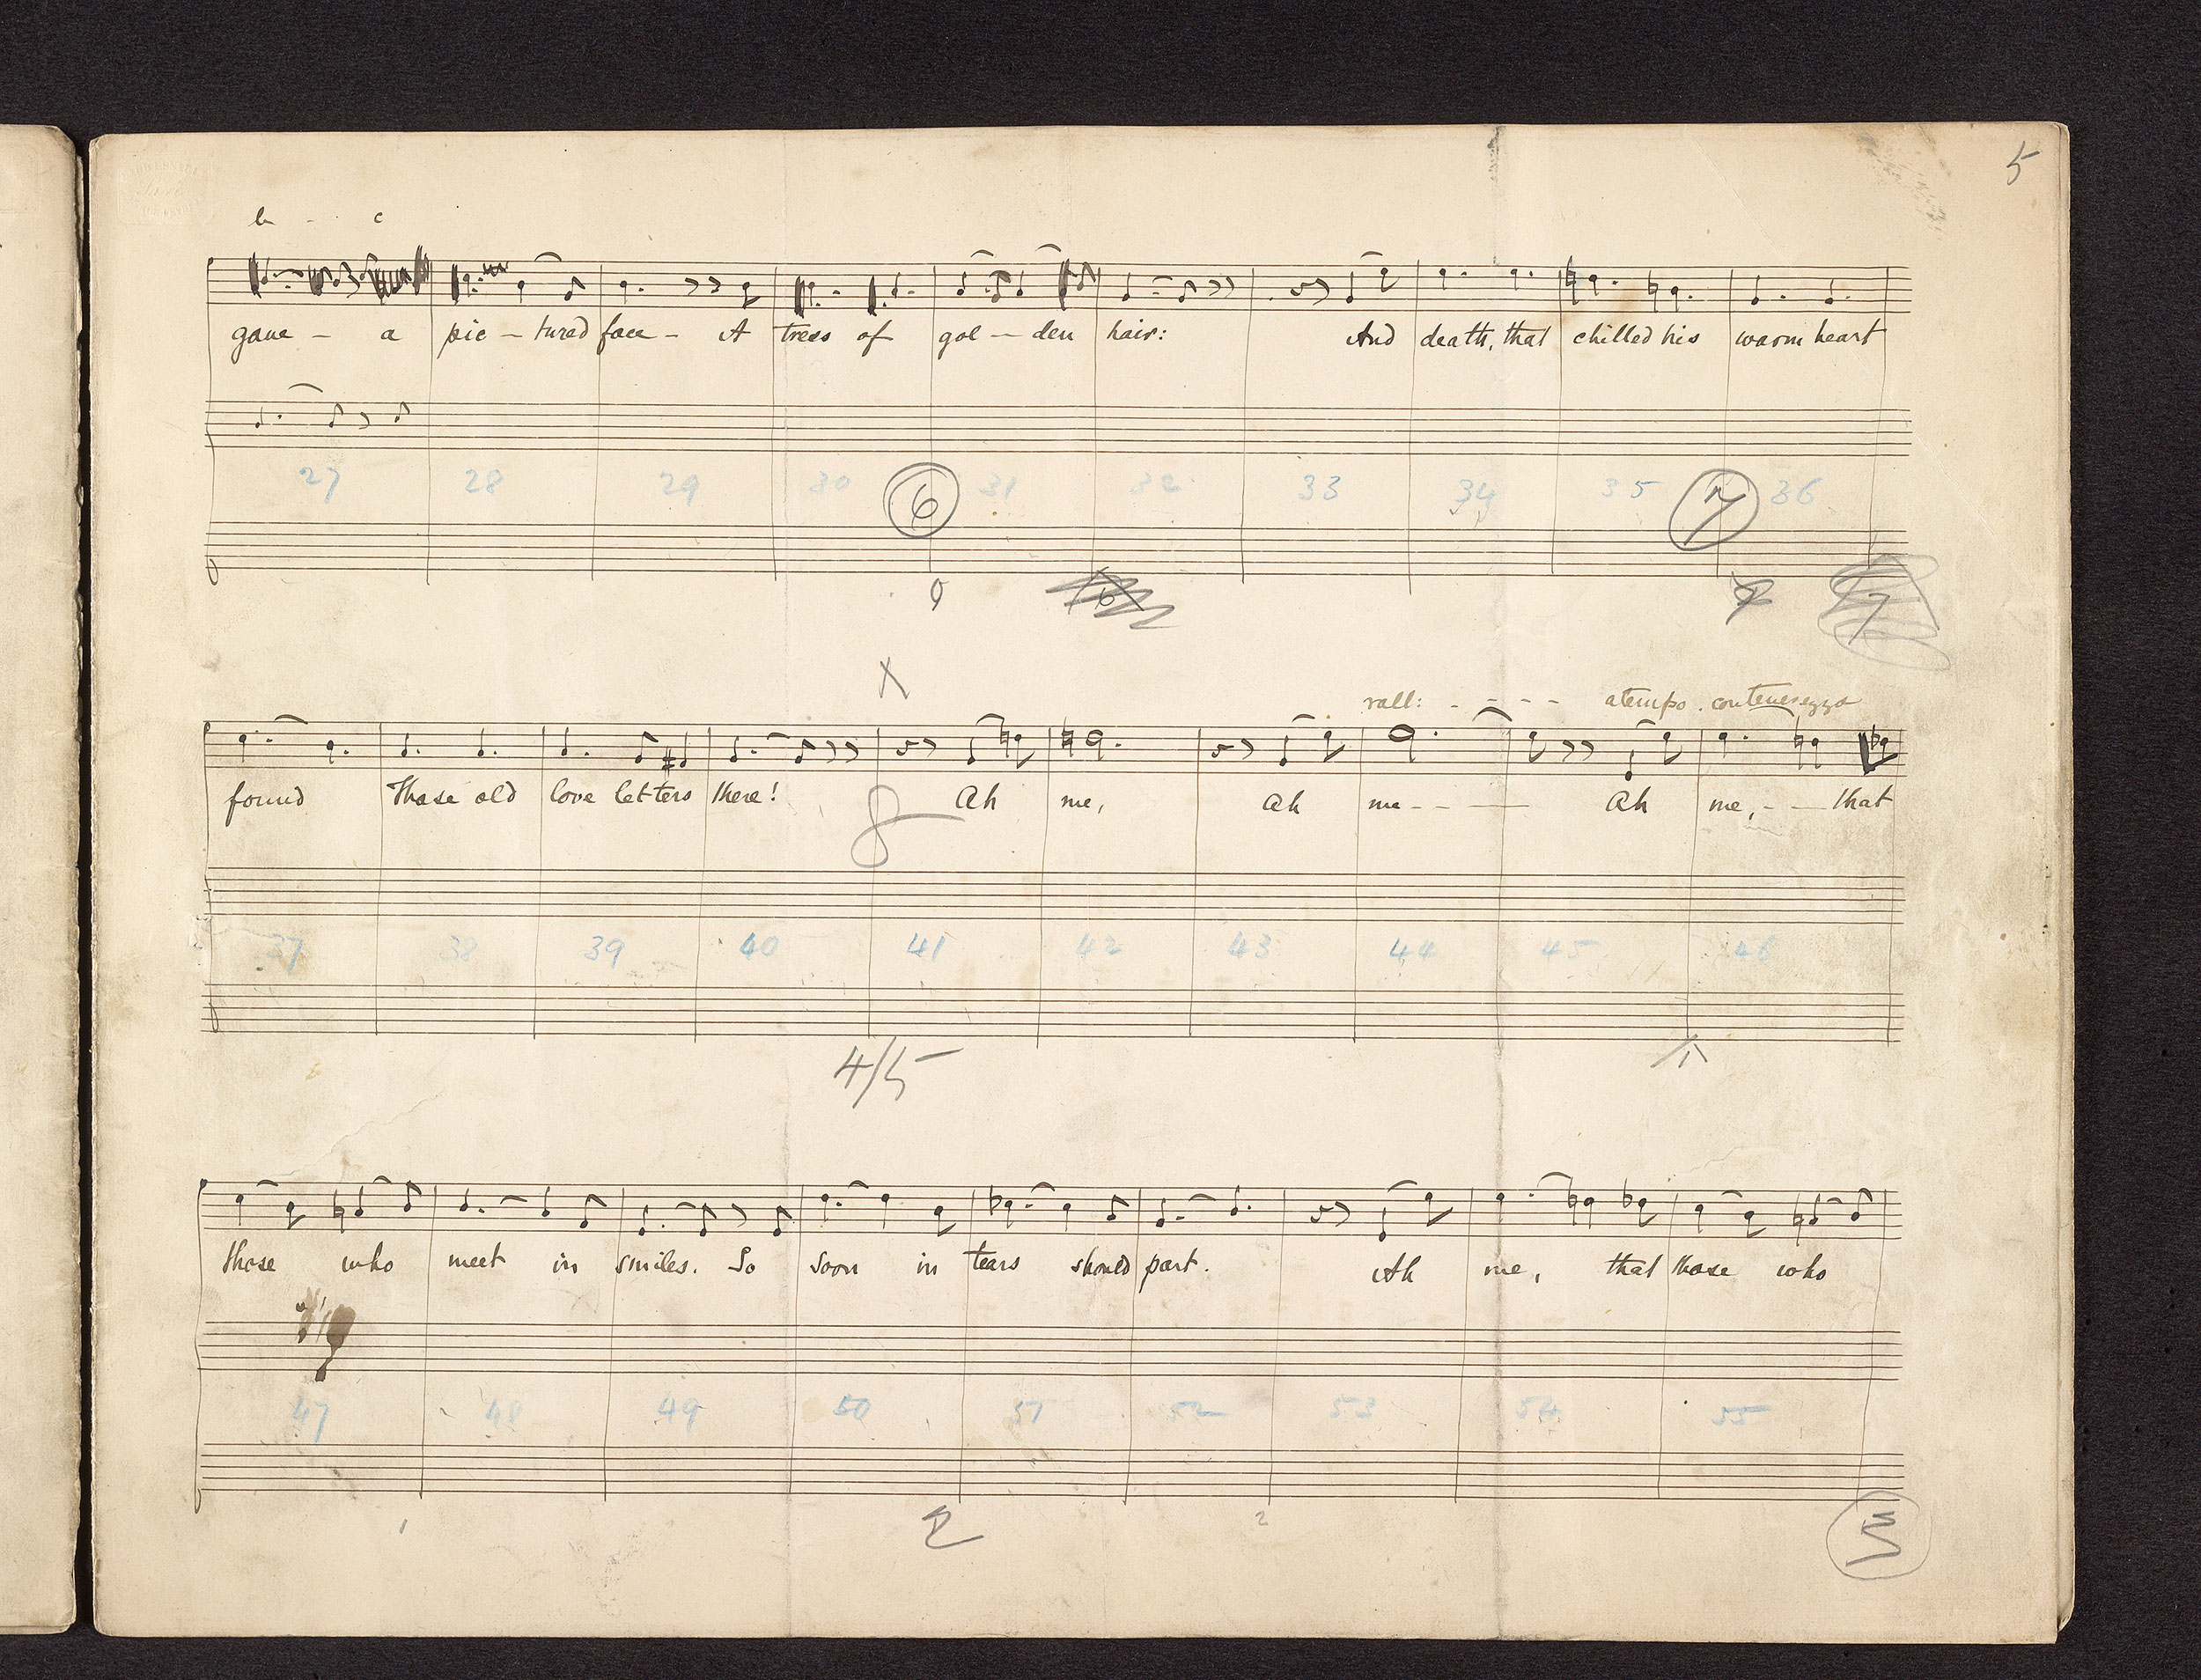 5
b - - c
gave - a pic - tured face - A tress of gol - den hair: And death, that chilled his warm heart
27 28 29 30 6 31 32 33 34 35 7 36
6 7
X
rall: - - - - a tempo. con tenerezza
found Those old love letters there! Ah me, Ah me - - - Ah me, - - that
8
37 38 39 40 41 42 43 44 45 46
4/5 1
those who meet in smiles. So soon in tears should part. Ah me, that those who
47 48 49 50 51 52 53 54 55
1 2 2 3